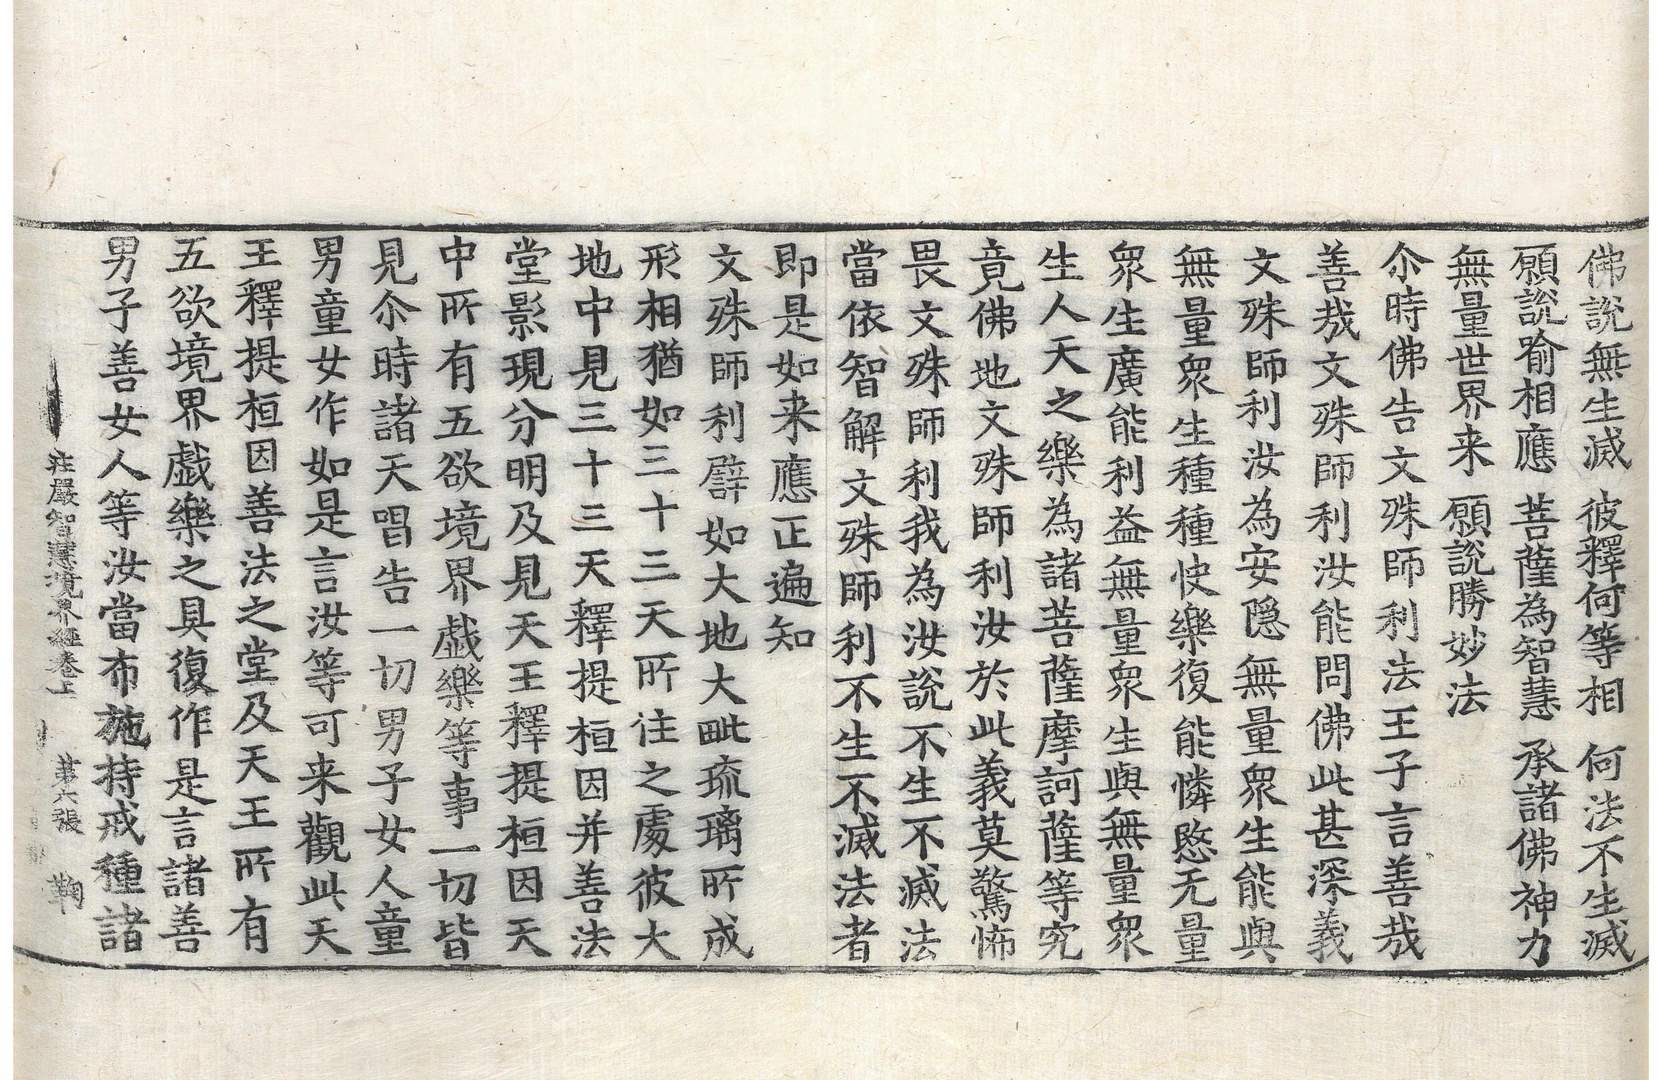 佛說無生滅 彼釋何等相 何法不生滅
願說喻相應 菩薩為智慧 承諸佛神力
無量世界来 願說勝妙法
尒時佛告文殊師利法王子言善哉
善哉文殊師利汝能問佛此甚深義
文殊師利汝為安隱無量衆生能與
無量衆生種種快樂復能憐愍无量
衆生廣能利益無量衆生與無量衆
生人天之樂為諸菩薩摩訶薩等究
竟佛地文殊師利汝於此義莫驚怖
畏文殊師利我為汝說不生不滅法
當依智解文殊師利不生不滅法者
即是如来應正遍知
文殊師利譬如大地大毗琉璃所成
形相猶如三十三天所住之處彼大
地中見三十三天釋提桓因并善法
堂影現分明及見天王釋提桓因天
中所有五欲境界戯樂等事一切皆
見尒時諸天唱告一切男子女人童
男童女作如是言汝等可来觀此天
王釋提桓因善法之堂及天王所有
五欲境界戯樂之具復作是言諸善
男子善女人等汝當布施持戒種諸
莊嚴智慧境界經卷上 第六張 鞠